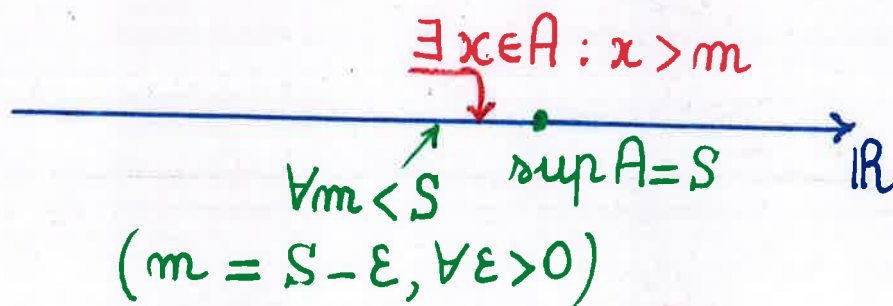 ∃ x∈A : x > m
∀m < S
sup A = S
ℝ
(m = S - ε, ∀ε > 0)